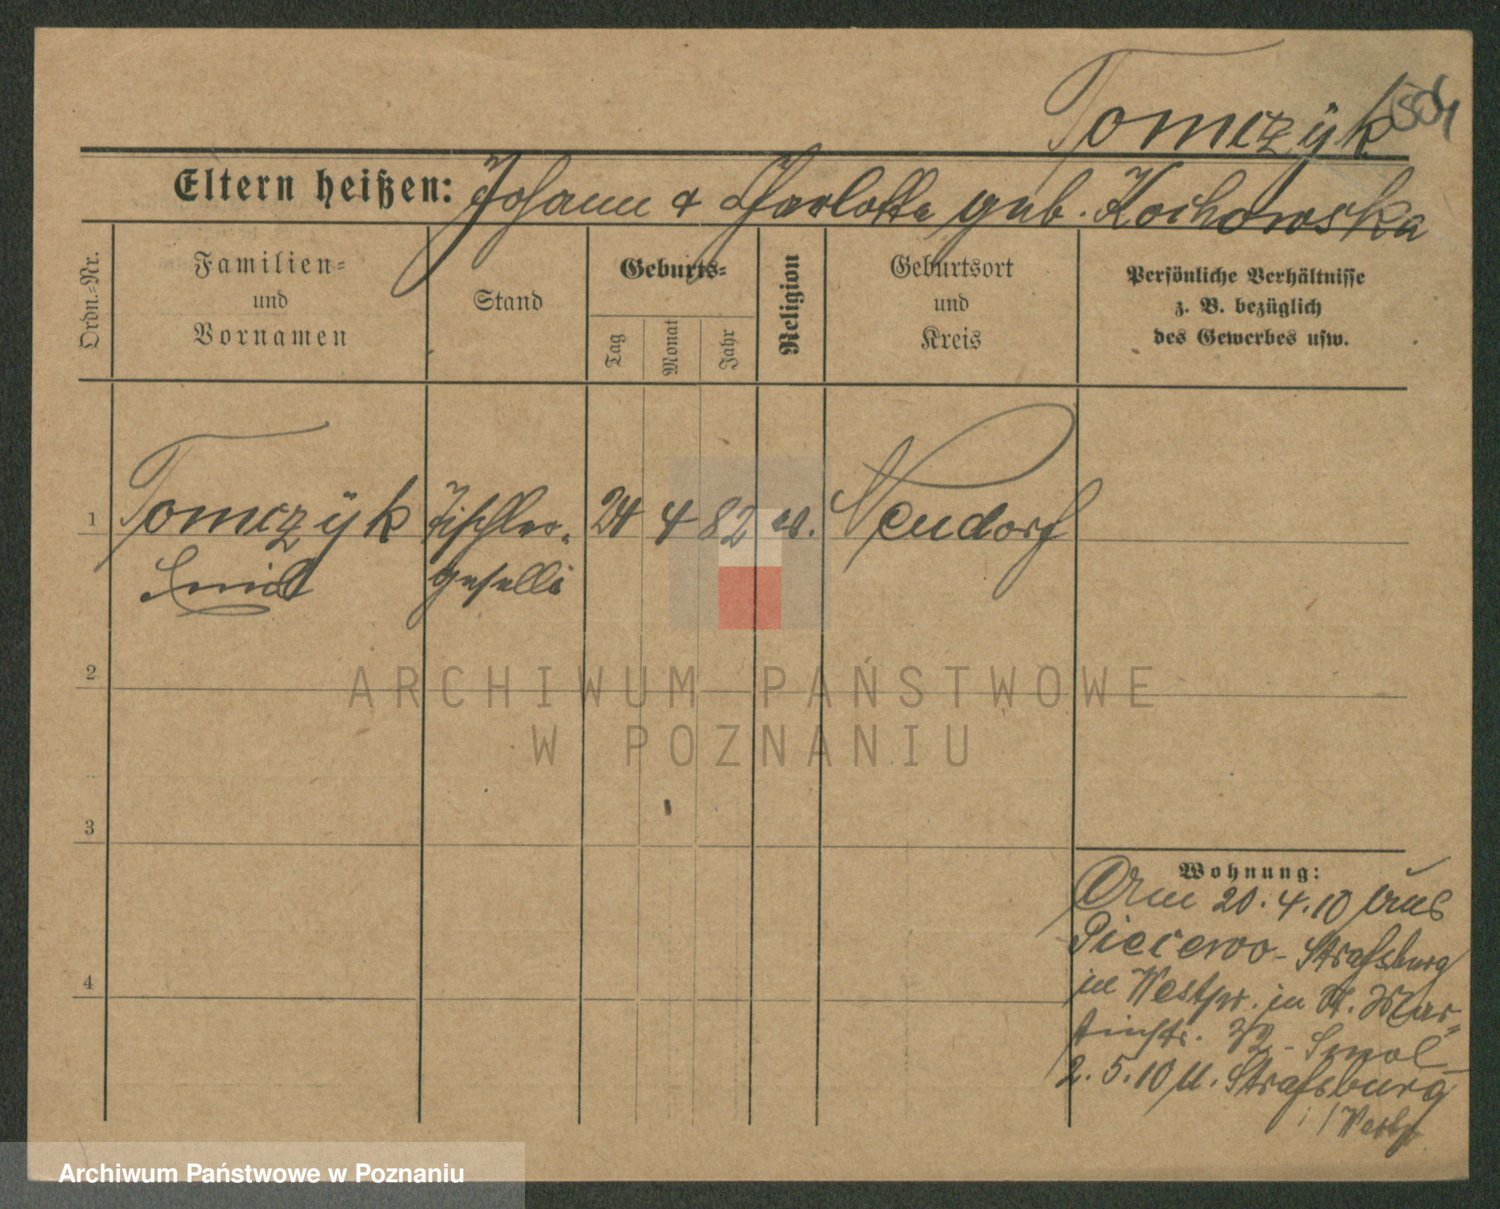 Tomczÿk
Eltern heißen: Johann & Charlotte geb. Kochowska
Ordn.-Nr.
Familien-
und
Vornamen
Stand
Geburts-
Tag
Monat
Jahr
Religion
Geburtsort
und
Kreis
Persönliche Verhältnisse
z. B. bezüglich
des Gewerbes usw.
1 Tomczÿk Tischler- 24 4 82 ev. Neudorf
Emil geselle
2
3
4
Wohnung:
Am 20.4.10 aus
Piecewo - Strasburg
in Westpr. in St. Mar-
tinstr. 32 -
2.5.10 n. Strasburg
i/Westpr
ARCHIWUM PAŃSTWOWE
W POZNANIU
Archiwum Państwowe w Poznaniu